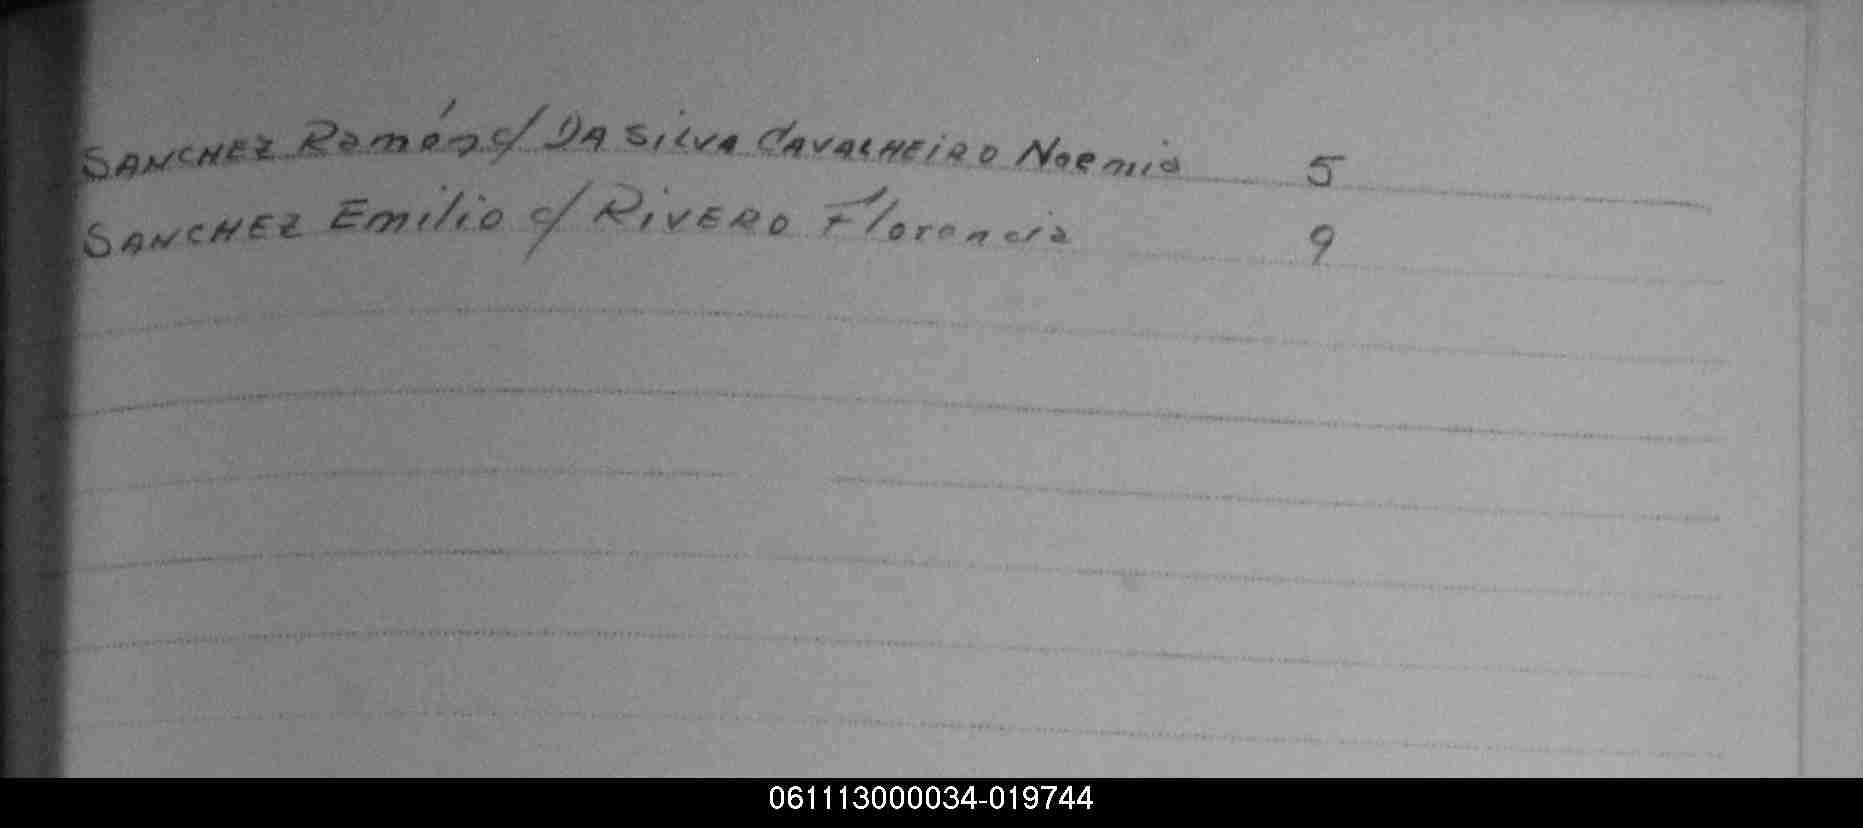 SANCHEZ Ramón c/ DA SILVA CAVALHEIRO Noemia 5
SANCHEZ Emilio c/ RIVERO Florencia 9
061113000034-019744